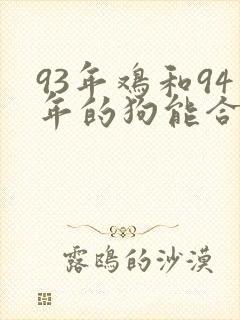 93年鸡和94
年的狗能合
露鸥的沙漠